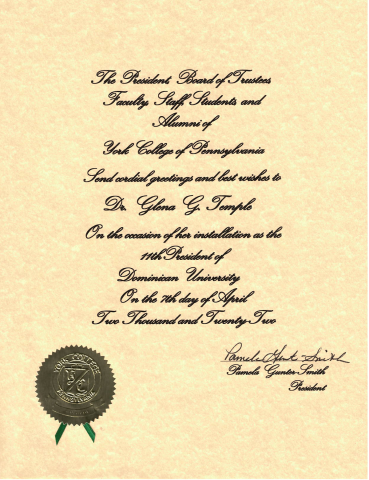 The President, Board of Trustees
Faculty, Staff, Students and
Alumni of
York College of Pennsylvania
Send cordial greetings and best wishes to
Dr. Glena G. Temple
On the occasion of her installation as the
11th President of
Dominican University
On the 7th day of April
Two Thousand and Twenty-Two
Pamela Gunter-Smith
Pamela Gunter-Smith
President
YORK COLLEGE
PENNSYLVANIA